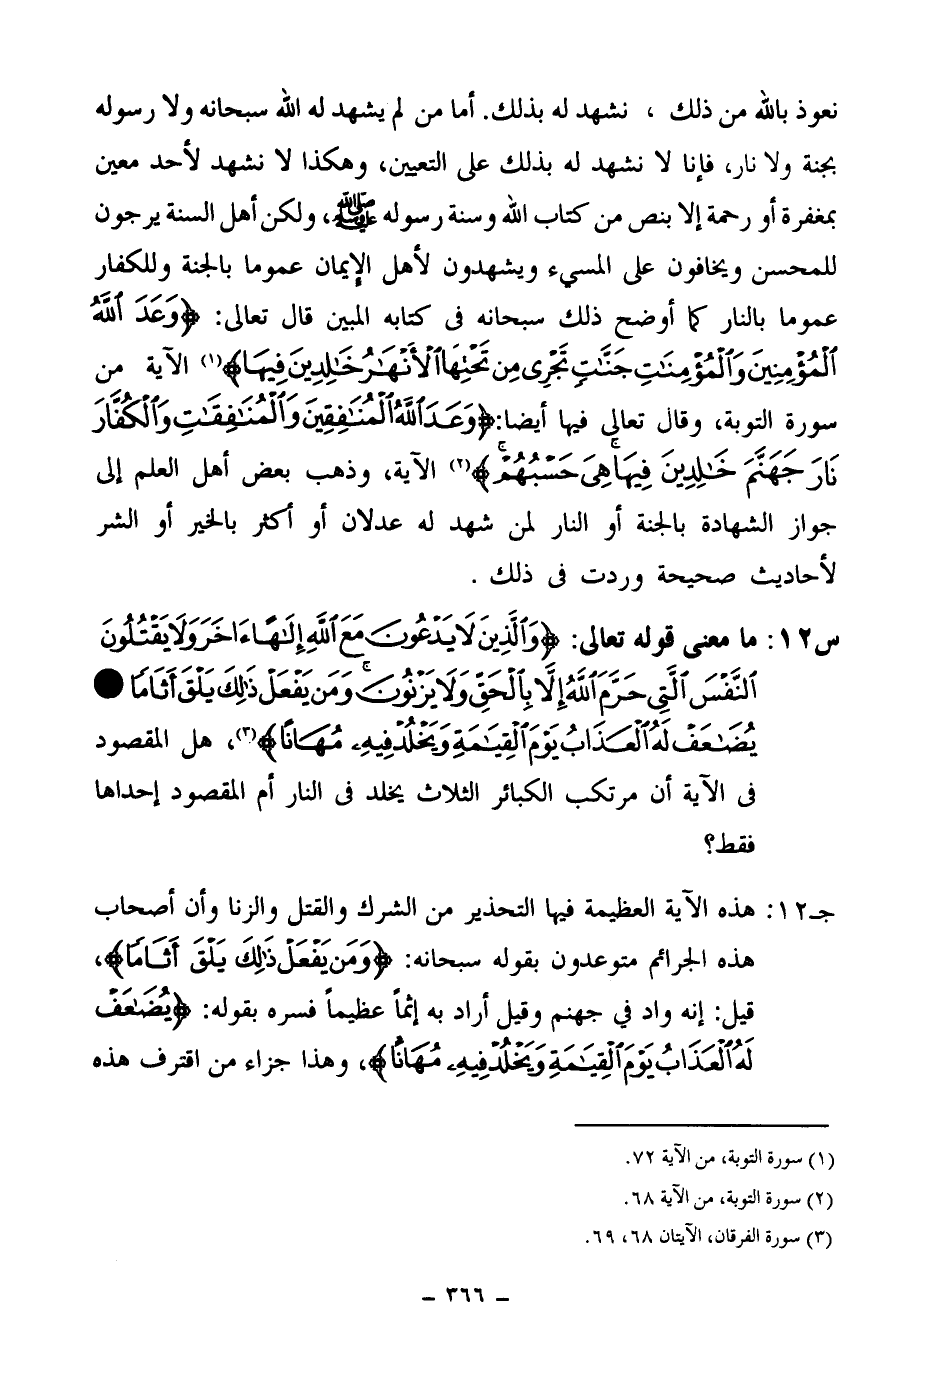 نعوذ بالله من ذلك ، نشهد له بذلك. أما من لم يشهد له الله سبحانه ولا رسوله
بجنة ولا نار، فإنا لا نشهد له بذلك على التعيين، وهكذا لا نشهد لأحد معين
بمغفرة أو رحمة إلا بنص من كتاب الله وسنة رسوله ﷺ، ولكن أهل السنة يرجون
للمحسن ويخافون على المسيء ويشهدون لأهل الإيمان عموما بالجنة وللكفار
عموما بالنار كما أوضح ذلك سبحانه فى كتابه المبين قال تعالى: ﴿وَعَدَ ٱللَّهُ
ٱلْمُؤْمِنِينَ وَٱلْمُؤْمِنَٰتِ جَنَّٰتٍ تَجْرِى مِن تَحْتِهَا ٱلْأَنْهَٰرُ خَٰلِدِينَ فِيهَا﴾(١) الآية من
سورة التوبة، وقال تعالى فيها أيضا: ﴿وَعَدَ ٱللَّهُ ٱلْمُنَٰفِقِينَ وَٱلْمُنَٰفِقَٰتِ وَٱلْكُفَّارَ
نَارَ جَهَنَّمَ خَٰلِدِينَ فِيهَا ۚ هِىَ حَسْبُهُمْ ۚ﴾(٢) الآية، وذهب بعض أهل العلم إلى
جواز الشهادة بالجنة أو النار لمن شهد له عدلان أو أكثر بالخير أو الشر
لأحاديث صحيحة وردت فى ذلك .
س١٢: ما معنى قوله تعالى: ﴿وَٱلَّذِينَ لَا يَدْعُونَ مَعَ ٱللَّهِ إِلَٰهًا ءَاخَرَ وَلَا يَقْتُلُونَ
ٱلنَّفْسَ ٱلَّتِى حَرَّمَ ٱللَّهُ إِلَّا بِٱلْحَقِّ وَلَا يَزْنُونَ ۚ وَمَن يَفْعَلْ ذَٰلِكَ يَلْقَ أَثَامًا ●
يُضَٰعَفْ لَهُ ٱلْعَذَابُ يَوْمَ ٱلْقِيَٰمَةِ وَيَخْلُدْ فِيهِۦ مُهَانًا﴾(٣)، هل المقصود
فى الآية أن مرتكب الكبائر الثلاث يخلد فى النار أم المقصود إحداها
فقط؟
جـ١٢: هذه الآية العظيمة فيها التحذير من الشرك والقتل والزنا وأن أصحاب
هذه الجرائم متوعدون بقوله سبحانه: ﴿وَمَن يَفْعَلْ ذَٰلِكَ يَلْقَ أَثَامًا﴾،
قيل: إنه واد في جهنم وقيل أراد به إثماً عظيماً فسره بقوله: ﴿يُضَٰعَفْ
لَهُ ٱلْعَذَابُ يَوْمَ ٱلْقِيَٰمَةِ وَيَخْلُدْ فِيهِۦ مُهَانًا﴾، وهذا جزاء من اقترف هذه
(١) سورة التوبة، من الآية ٧٢.
(٢) سورة التوبة، من الآية ٦٨.
(٣) سورة الفرقان، الآيتان ٦٨، ٦٩.
- ٣٦٦ -